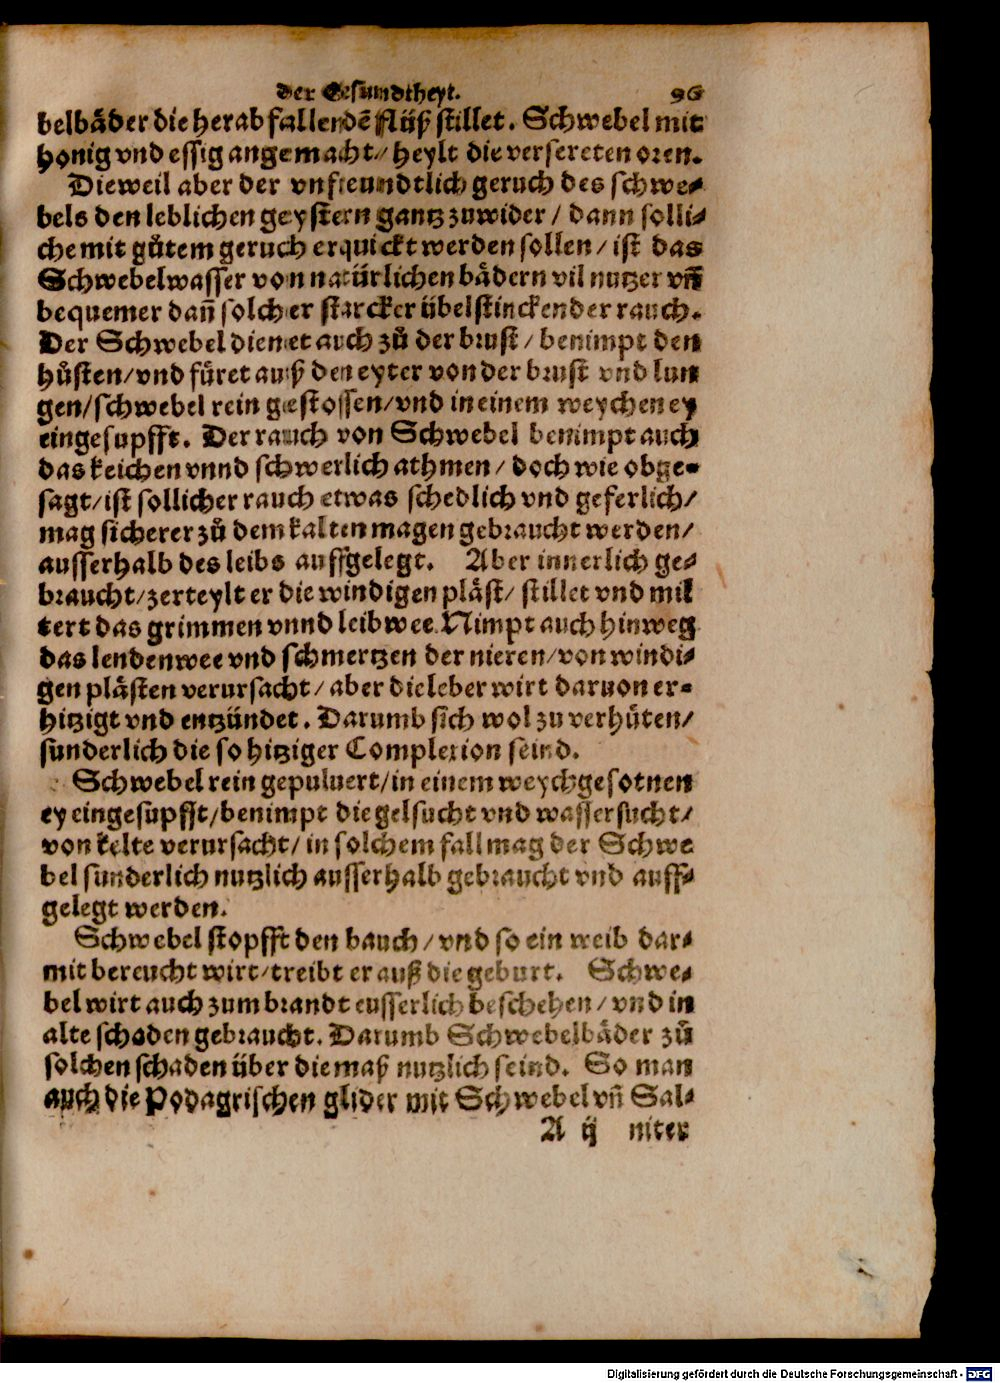 der Gesundtheyt. 96
belbåder die herab fallendē flüß stillet. Schwebel mit
honig vnd essig angemacht / heylt die versereten oren.
Dieweil aber der vnfreundtlich geruch des schwe⸗
bels den leblichen geystern gantz zuwider / dann solli⸗
che mit gůtem geruch erquickt werden sollen / ist das
Schwebelwasser von natürlichen bådern vil nutzer vñ
bequemer dañ solcher starcker übelstinckender rauch.
Der Schwebel dienet auch zů der brust / benimpt den
hůsten / vnd füret auß den eyter von der brust vnd lun
gen / schwebel rein gestossen / vnd in einem weychen ey
eingesupfft. Der rauch von Schwebel benimpt auch
das keichen vnnd schwerlich athmen / doch wie obge⸗
sagt / ist sollicher rauch etwas schedlich vnd geferlich /
mag sicherer zů dem kalten magen gebraucht werden /
ausserhalb des leibs auffgelegt. Aber innerlich ge⸗
braucht / zerteylt er die windigen plåst / stillet vnd mil
tert das grimmen vnnd leibwee. Nimpt auch hinweg
das lendenwee vnd schmertzen der nieren / von windi⸗
gen plåsten verursacht / aber die leber wirt daruon er⸗
hitzigt vnd entzündet. Darumb sich wol zu verhüten /
sunderlich die so hitziger Complexion seind.
Schwebel rein gepuluert / in einem weychgesotnen
ey eingesupfft / benimpt die gelsucht vnd wassersucht /
von kelte verursacht / in solchem fall mag der Schwe
bel sunderlich nutzlich ausserhalb gebraucht vnd auff⸗
gelegt werden.
Schwebel stopfft den bauch / vnd so ein weib dar⸗
mit bereucht wirt / treibt er auß die geburt. Schwe⸗
bel wirt auch zum brandt eusserlich beschehen / vnd in
alte schaden gebraucht. Darumb Schwebelbåder zů
solchen schaden über die maß nutzlich seind. So man
auch die Podagrischen glider mit Schwebel vñ Sal⸗
A ij niter
Digitalisierung gefördert durch die Deutsche Forschungsgemeinschaft - DFG